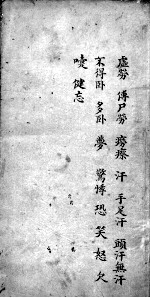 虛勞 傳尸勞 癆瘵 汗 手足汗 頭汗無汗
不得卧 多卧 夢 驚悸 恐 笑 怒 欠
嚏 健忘